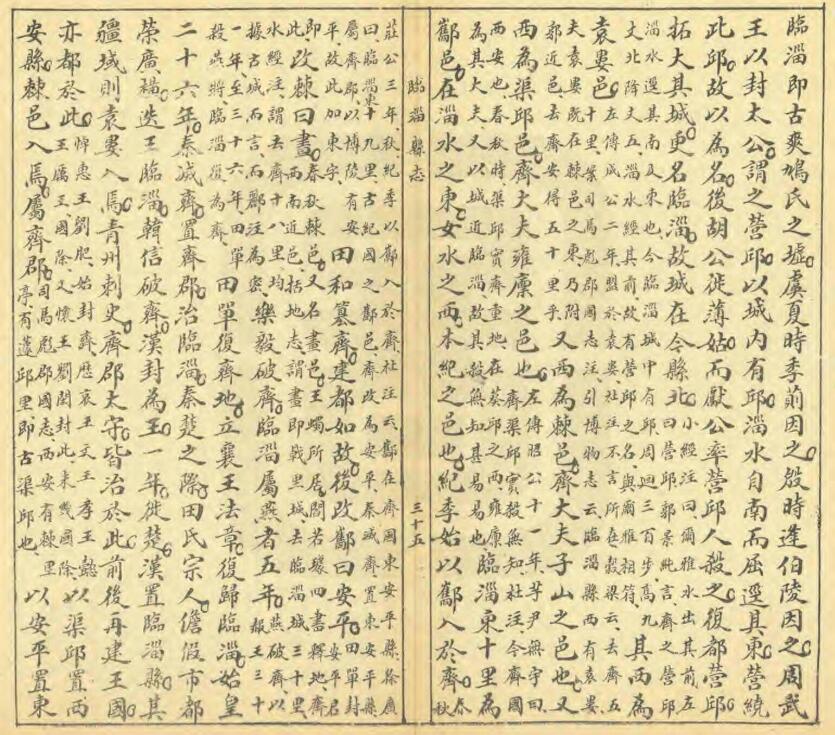 臨淄即古爽鳩氏之墟虞夏時季荝因之殷時逄伯陵因之周武
王以封太公謂之營邱以城內有邱淄水自南而屈逕其東營繞
此邱故以為名後胡公徙薄姑而獻公率營邱人殺之復都營邱
拓大其城更名臨淄故城在今縣北水經注曰爾雅水出其前左曰營邱郭景純言齊之營邱
淄水逕其南及東也今臨淄城中有邱周迴三百步高九丈北降丈五淄水經其前故有營邱之名與爾雅相符其西為
袁婁邑左傳成公二年盟於袁婁杜注不言所在穀梁云去齊五十里案司馬彪郡國志注引博物志云臨淄縣西有袁婁
夫袁婁既在棘邑之東乃附郭近邑去齊安得五十里乎又西為棘邑齊大夫子山之邑也又
西為渠邱邑齊大夫雍廩之邑也左傳昭公十一年芋尹無宇曰齊渠邱實殺無知杜注今齊國
西安也春秋時渠邱實齊重地在葵邱之西雍廩為其大夫又以城近臨淄故其殺無知甚易易也臨淄東十里為
酅邑在淄水之東女水之西本紀之邑也紀季始以酅入於齊春秋
臨淄縣志
三十五
莊公三年秋紀季以酅入於齊杜注云酅在齊國東安平縣徐廣曰臨淄東十九里古紀國之酅邑齊改為安平秦滅齊置東安平縣
屬齊郡以博陵有安平故此加東字田和篡齊建都如故後改酅曰安平田單封安平君
即此改棘曰畫春秋棘邑又名畫邑王蠋所居閻若璩四書釋地齊西南近邑括地志謂畫即戟里城去臨淄城三十里
水經注謂去齊十八里均據古城而言而酈注為密樂毅破齊臨淄屬燕者五年燕破齊以赧王三十
一年至三十六年田單殺燕將臨淄復為齊田單復齊地立襄王法章復歸臨淄始皇
二十六年秦滅齊置齊郡治臨淄秦楚之際田氏宗人儋假市都
榮廣褐迭王臨淄韓信破齊漢封為王一年徙楚漢置臨淄縣其
疆域則袁婁入焉青州刺史齊郡太守皆治於此前後再建王國
亦都於此悼惠王劉肥始封齊歷哀王文王孝王懿王厲王國除又懷王劉閎封此未幾國除以渠邱置西
安縣棘邑入焉屬齊郡司馬彪郡國志西安有棘里亭有蘧邱里即古渠邱也以安平置東